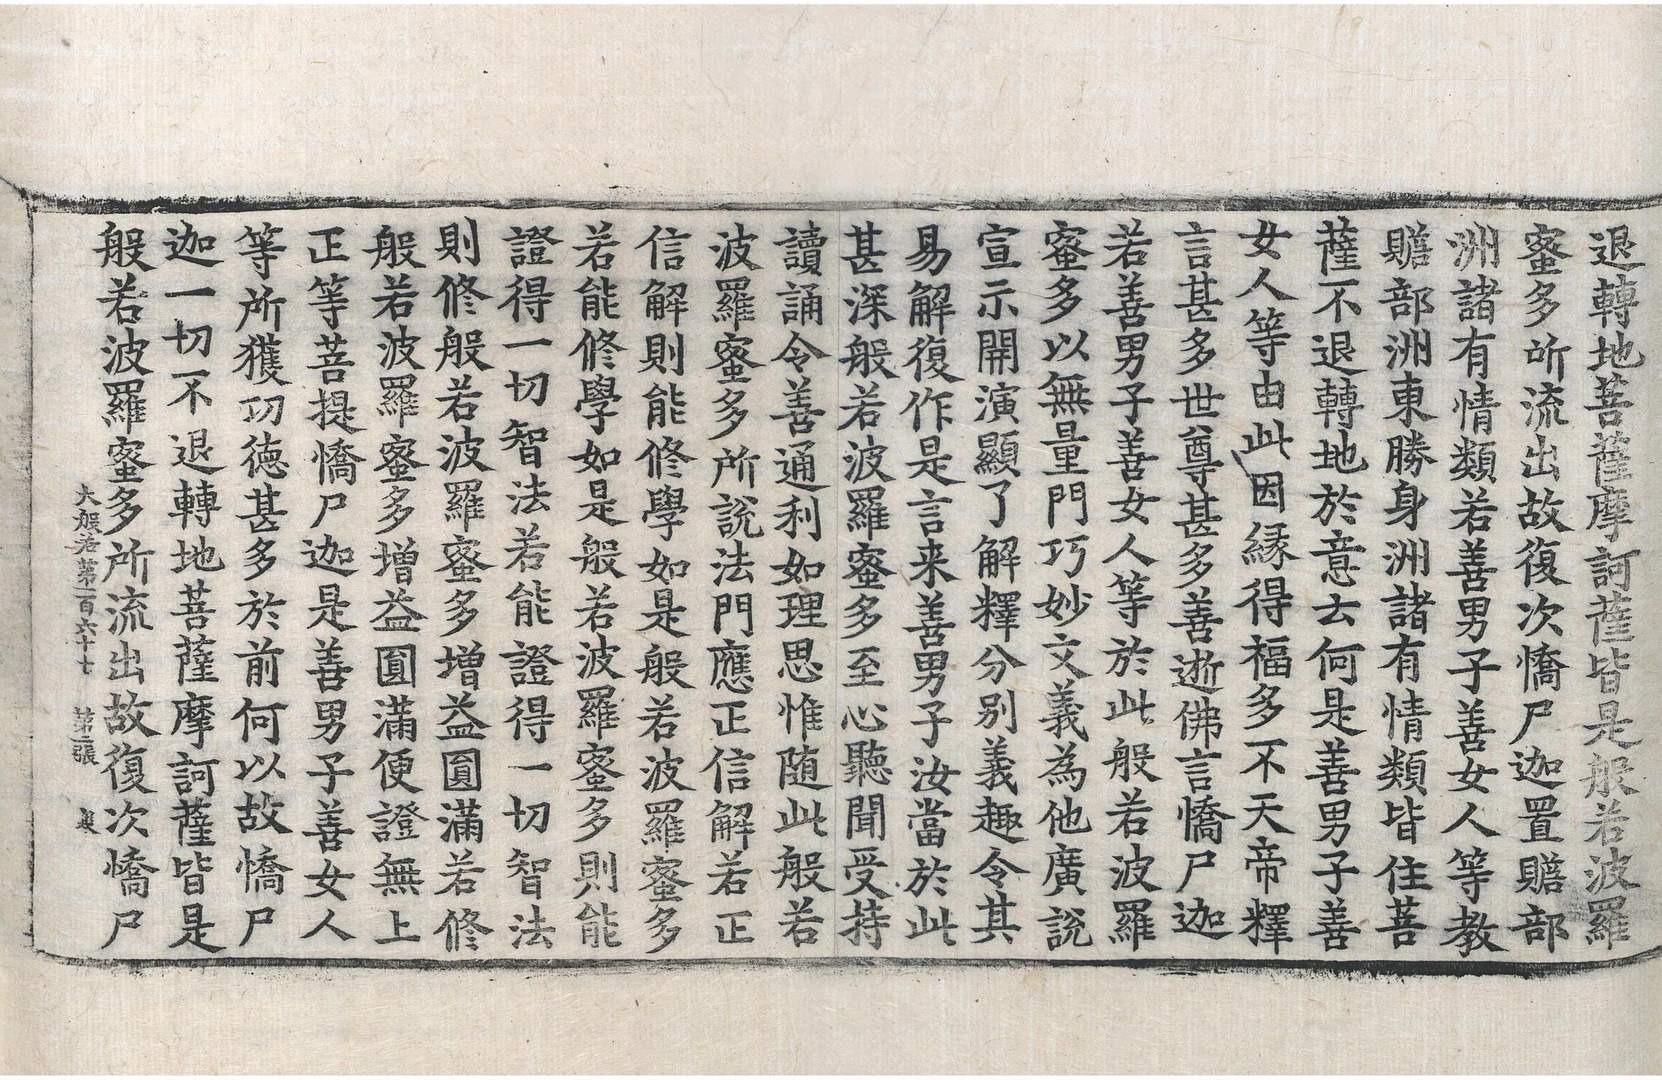 退轉地菩薩摩訶薩皆是般若波羅
蜜多所流出故復次憍尸迦置贍部
洲諸有情類若善男子善女人等教
贍部洲東勝身洲諸有情類皆住菩
薩不退轉地於意云何是善男子善
女人等由此因緣得福多不天帝釋
言甚多世尊甚多善逝佛言憍尸迦
若善男子善女人等於此般若波羅
蜜多以無量門巧妙文義為他廣說
宣示開演顯了解釋分別義趣令其
易解復作是言来善男子汝當於此
甚深般若波羅蜜多至心聽聞受持
讀誦令善通利如理思惟随此般若
波羅蜜多所說法門應正信解若正
信解則能修學如是般若波羅蜜多
若能修學如是般若波羅蜜多則能
證得一切智法若能證得一切智法
則修般若波羅蜜多增益圓滿若修
般若波羅蜜多增益圓滿便證無上
正等菩提憍尸迦是善男子善女人
等所獲功德甚多於前何以故憍尸
迦一切不退轉地菩薩摩訶薩皆是
般若波羅蜜多所流出故復次憍尸
大般若第一百六十七 第二張